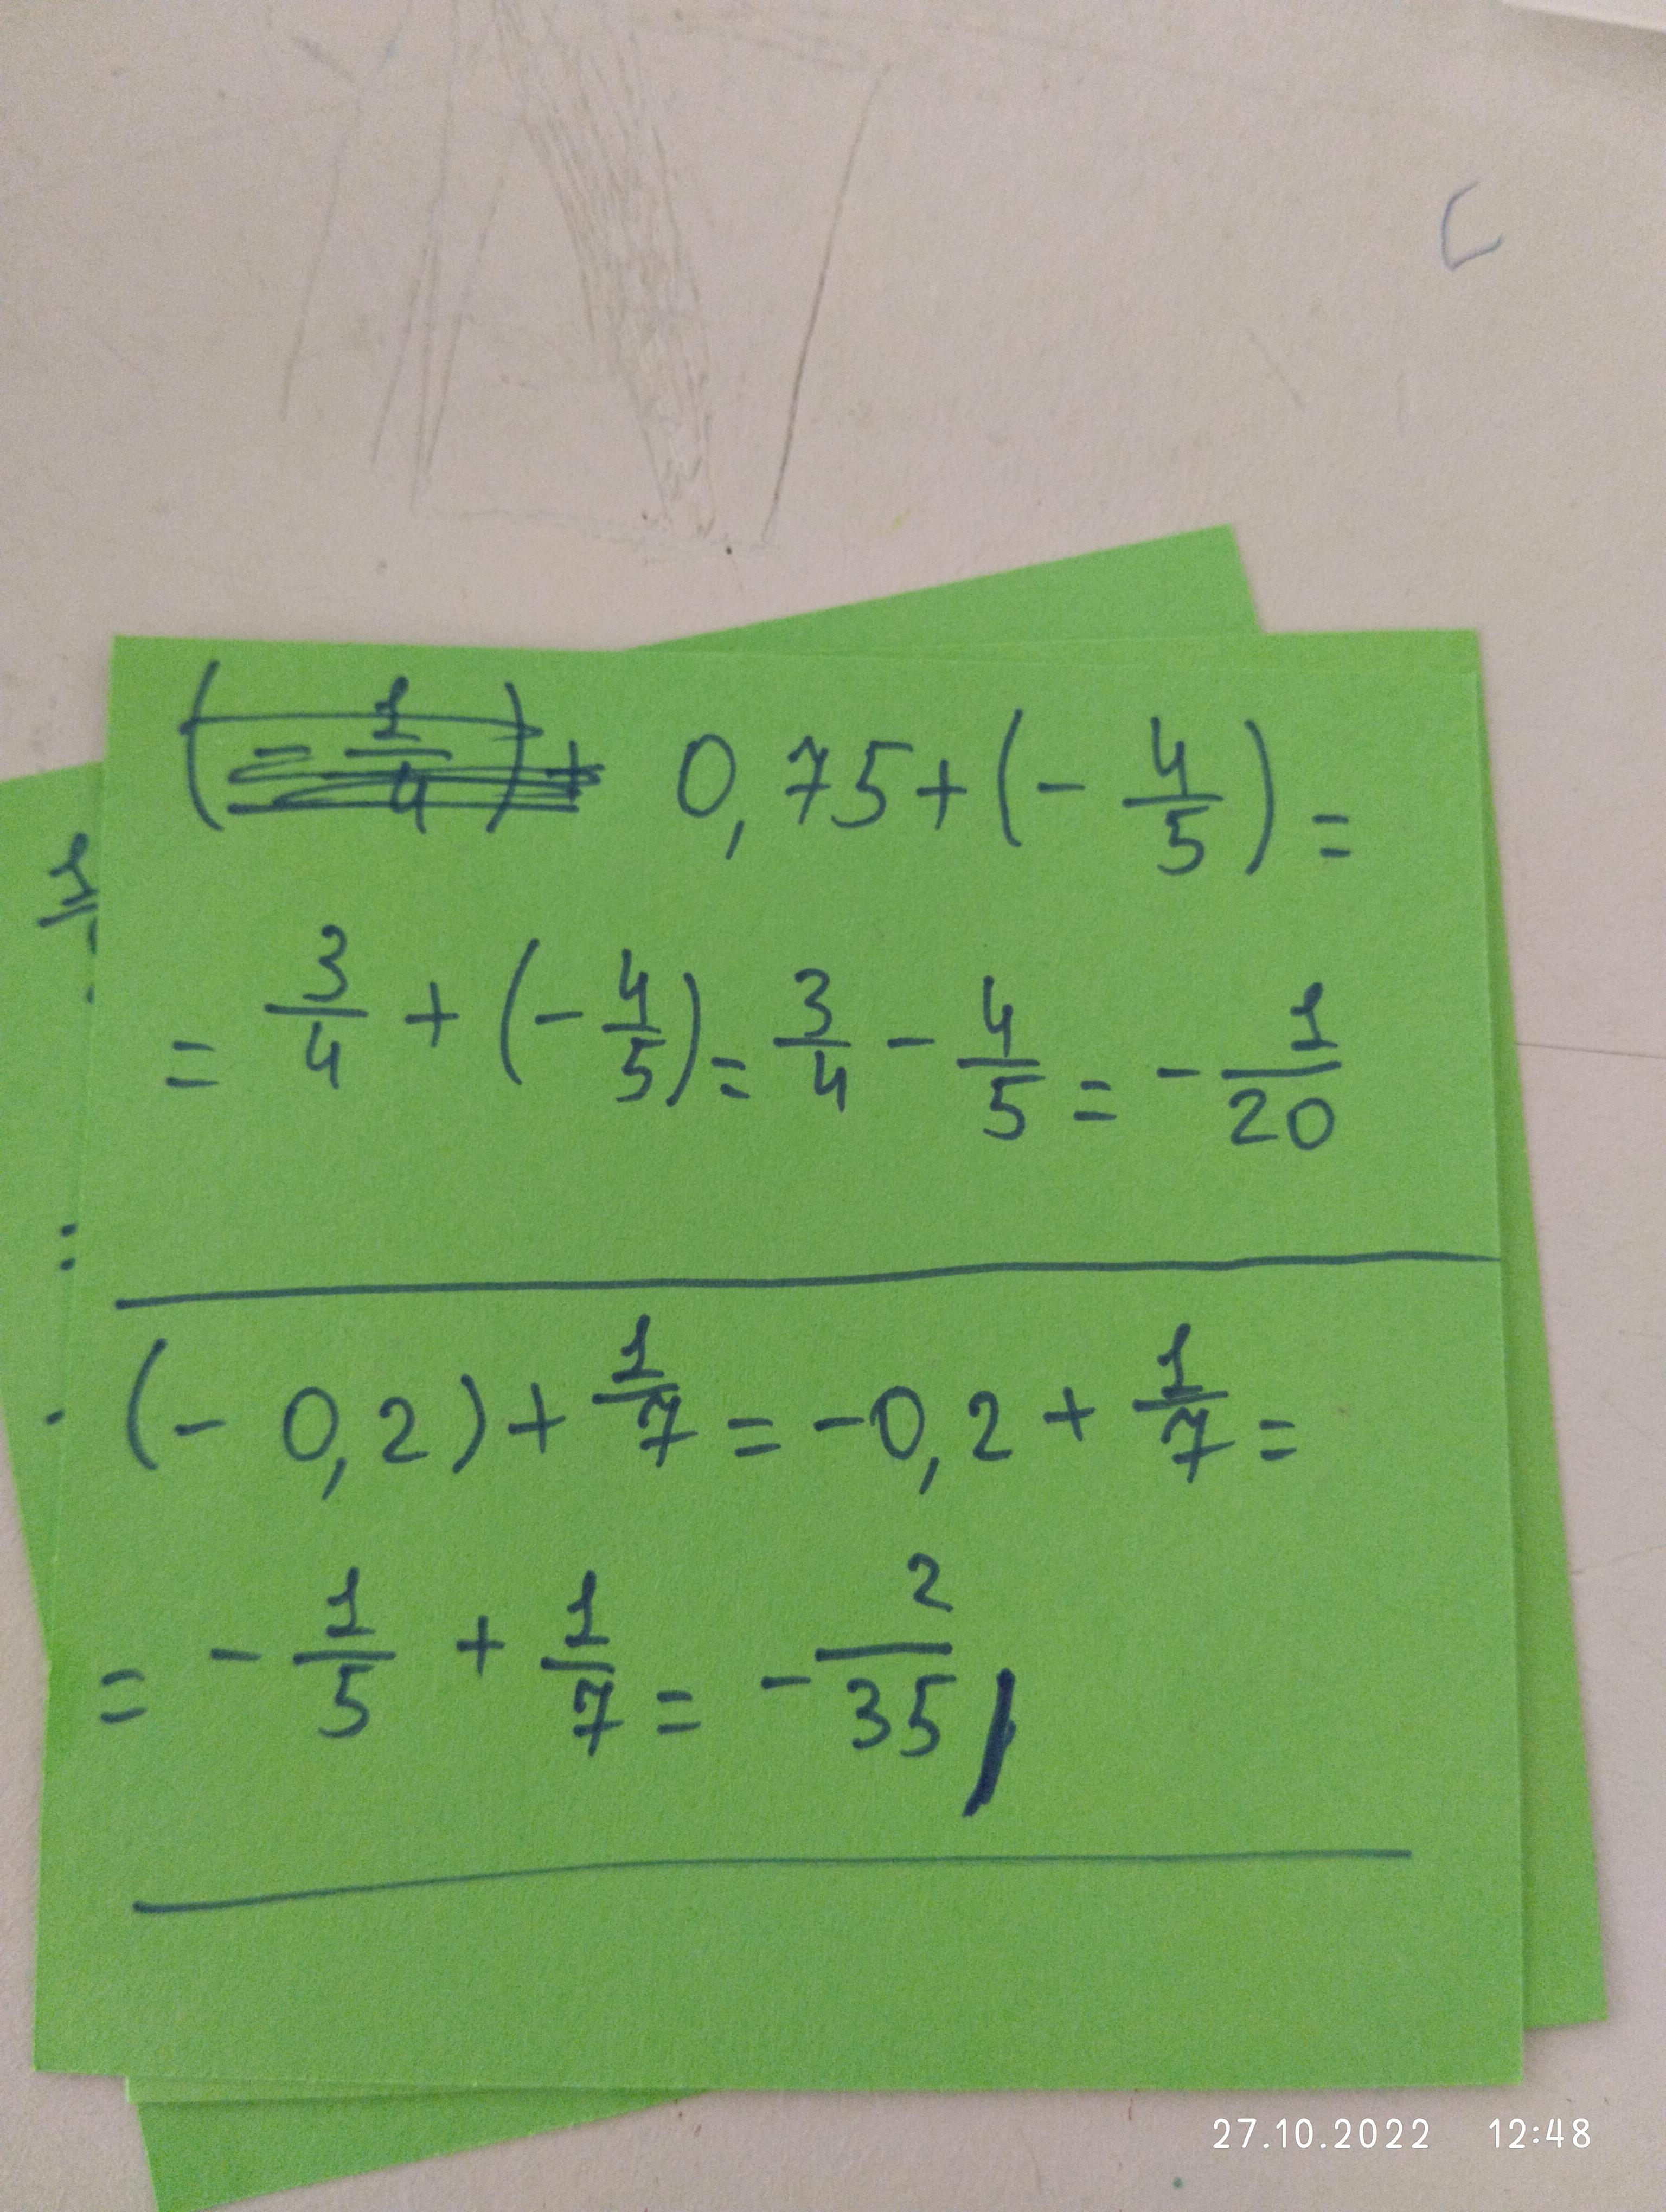 0,75 + (- 4/5) =
= 3/4 + (- 4/5) = 3/4 - 4/5 = - 1/20
(- 0,2) + 1/7 = -0,2 + 1/7 =
= - 1/5 + 1/7 = - 2/35
27.10.2022 12:48